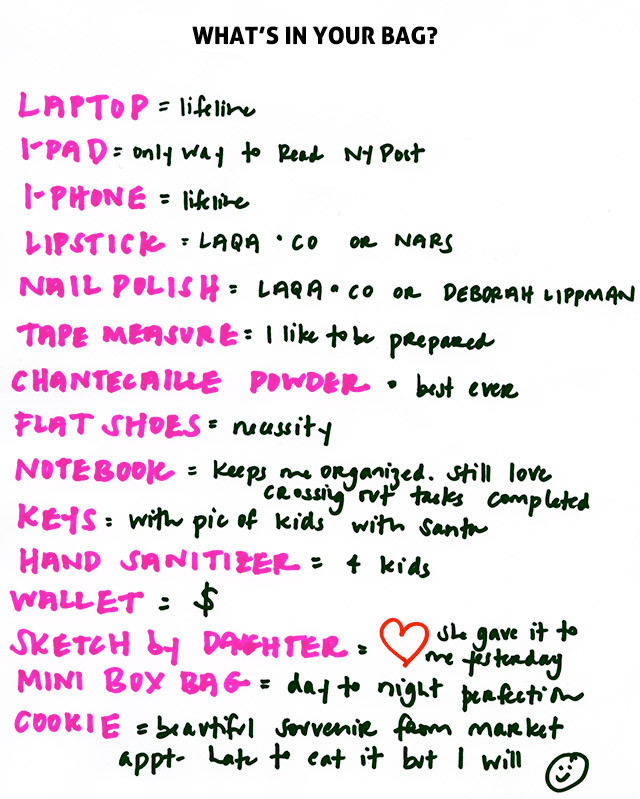 WHAT'S IN YOUR BAG?
LAPTOP = lifeline
I-PAD = only way to Read NY Post
I-PHONE = lifeline
LIPSTICK = LAQA • CO OR NARS
NAIL POLISH = LAQA • CO OR DEBORAH LIPPMAN
TAPE MEASURE = I like to be prepared
CHANTECAILLE POWDER • best ever
FLAT SHOES = necessity
NOTEBOOK = keeps me organized. still love
crossing out tasks completed
KEYS = with pic of kids with Santa
HAND SANITIZER = 4 kids
WALLET = $
SKETCH by DAUGHTER = ♥ she gave it to
me yesterday
MINI BOX BAG = day to night perfection
COOKIE = beautiful souvenir from market
appt- hate to eat it but I will ☺